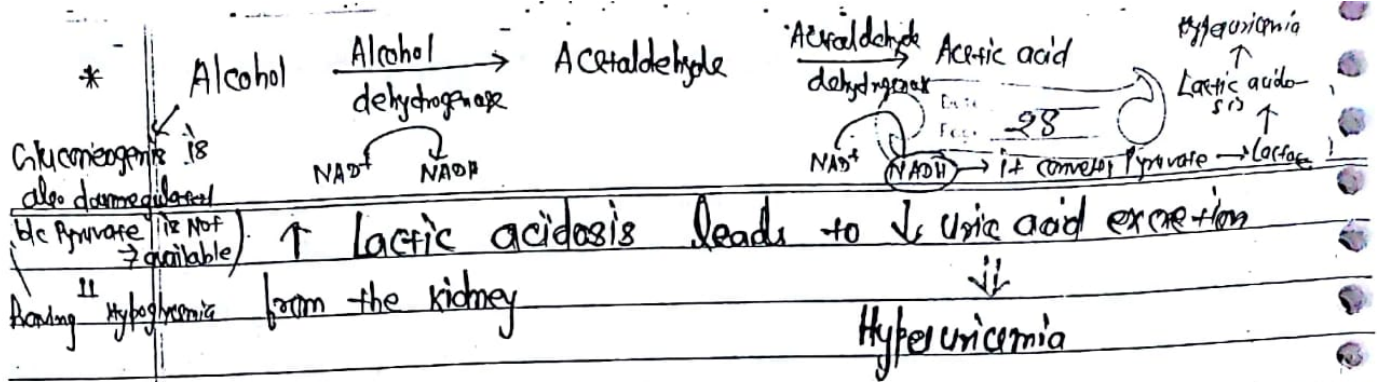 * Alcohol Alcohol dehydrogenase → Acetaldehyde Acetaldehyde dehydrogenase → Acetic acid
Hyperuricemia
↑
Lactic acido-
sis
↑
NAD+ NADH NAD+ NADH → it converts Pyruvate → Lactate
28
Gluconeogenis is
also downregulated
b/c Pyruvate is Not
available)
Hypoglycemia
↑ Lactic acidosis leads to ↓ Uric acid excretion
from the kidney
⇓
Hyperuricemia